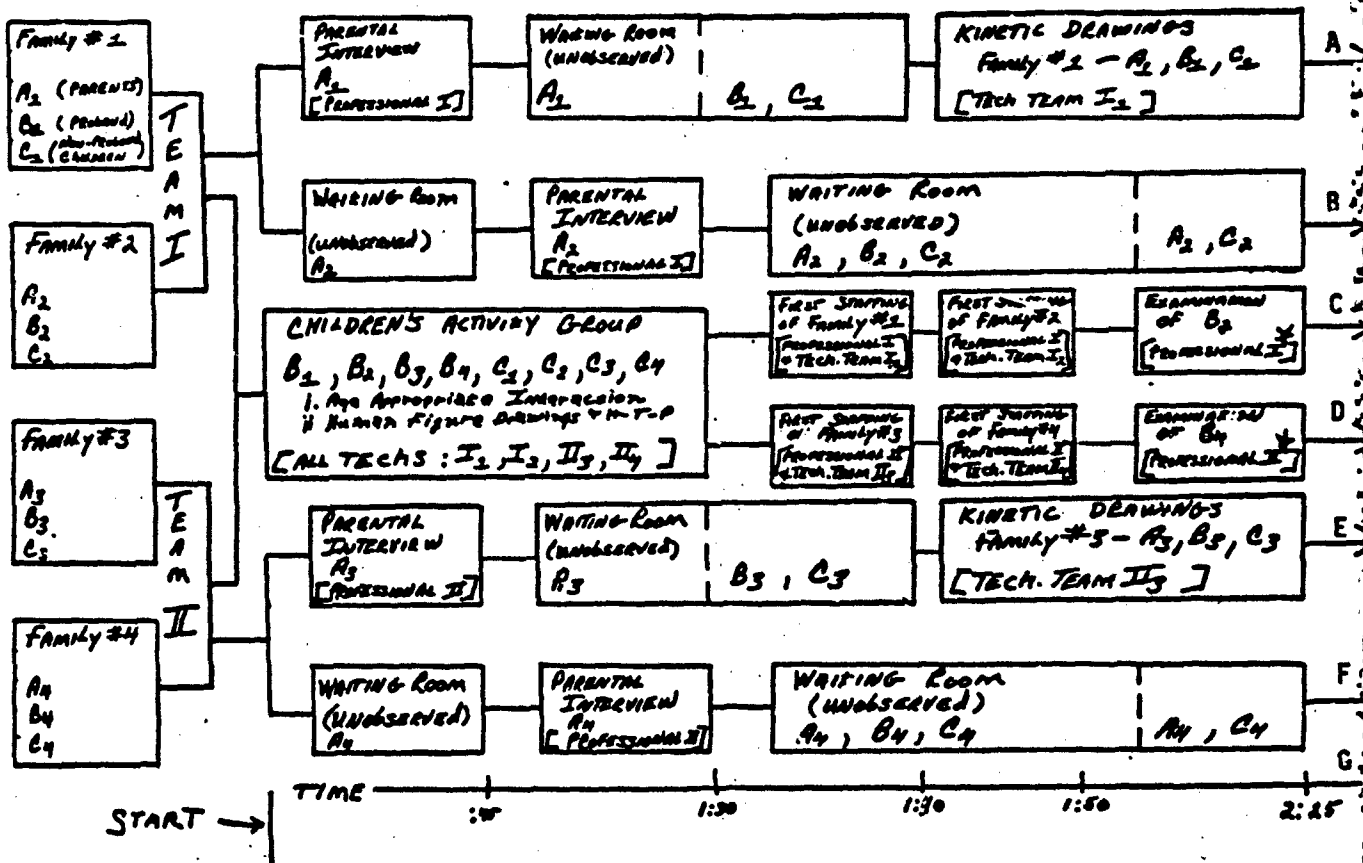 Family #1
A1 (PARENTS)
B1 (PROBAND)
C1 (NON-PROBAND
CHILDREN)
Family #2
A2
B2
C2
Family #3
A3
B3
C3
Family #4
A4
B4
C4
TEAM I
TEAM II
PARENTAL
INTERVIEW
A1
[PROFESSIONAL I]
WAITING ROOM
(UNOBSERVED)
A1
B1, C1
KINETIC DRAWINGS
Family #1 - A1, B1, C1
[TECH TEAM I1]
A
WAITING ROOM
(UNOBSERVED)
A2
PARENTAL
INTERVIEW
A2
[PROFESSIONAL I]
WAITING ROOM
(UNOBSERVED)
A2, B2, C2
A2, C2
B
CHILDREN'S ACTIVITY GROUP
B1, B2, B3, B4, C1, C2, C3, C4
i. Age Appropriate Interaction
ii Human Figure Drawings + H-T-P
[ALL TECHS: I1, I2, II3, II4]
FIRST STAFFING
of Family #1
[PROFESSIONAL I
+ TECH. TEAM I1]
FIRST
of Family #2
[PROFESSIONAL I
+ TECH. TEAM I2]
EXAMINATION
of B2
[PROFESSIONAL I]
C
FIRST STAFFING
of Family #3
[PROFESSIONAL II
+ TECH. TEAM II3]
FIRST STAFFING
of Family #4
[PROFESSIONAL
+ TECH. TEAM
EXAMINATION
of B4
[PROFESSIONAL II]
D
PARENTAL
INTERVIEW
A3
[PROFESSIONAL II]
WAITING ROOM
(UNOBSERVED)
A3
B3, C3
KINETIC DRAWINGS
FAMILY #3 - A3, B3, C3
[TECH. TEAM II3]
E
WAITING ROOM
(UNOBSERVED)
A4
PARENTAL
INTERVIEW
A4
[PROFESSIONAL II]
WAITING ROOM
(UNOBSERVED)
A4, B4, C4
A4, C4
F
G
TIME
:45
1:30
1:50
2:25
START